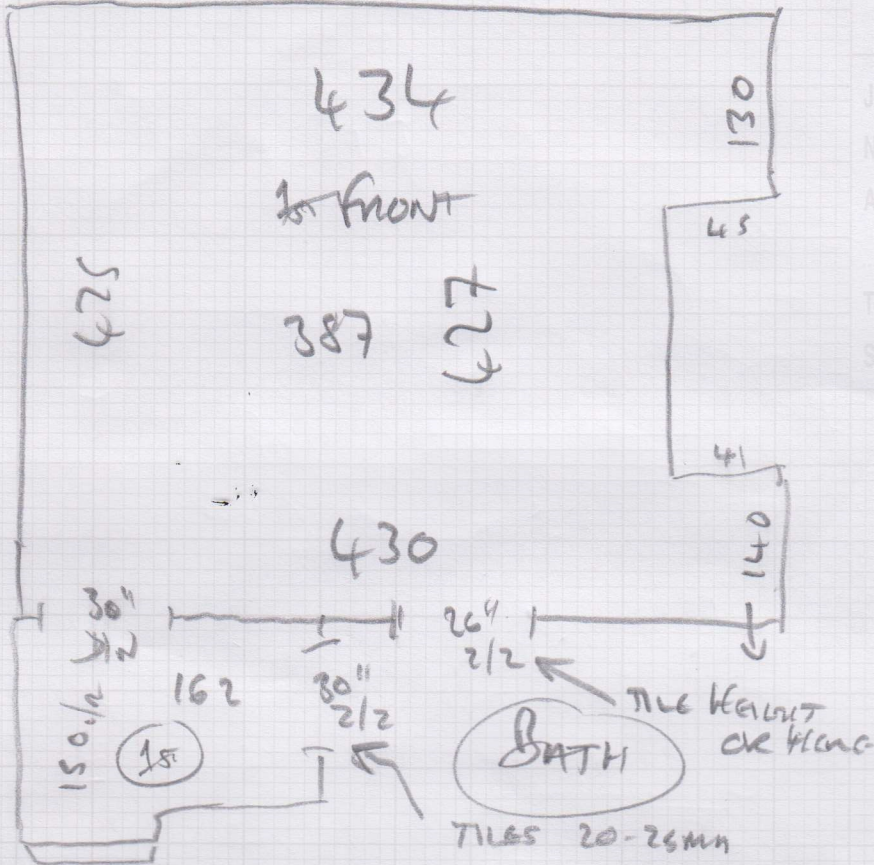 434
130
1st FRONT
45
425
387
427
41
430
140
30"
26"
2/2
162
30"
2/2
150
1st
BATH
TILE HEIGHT
OR
TILES 20-25mm